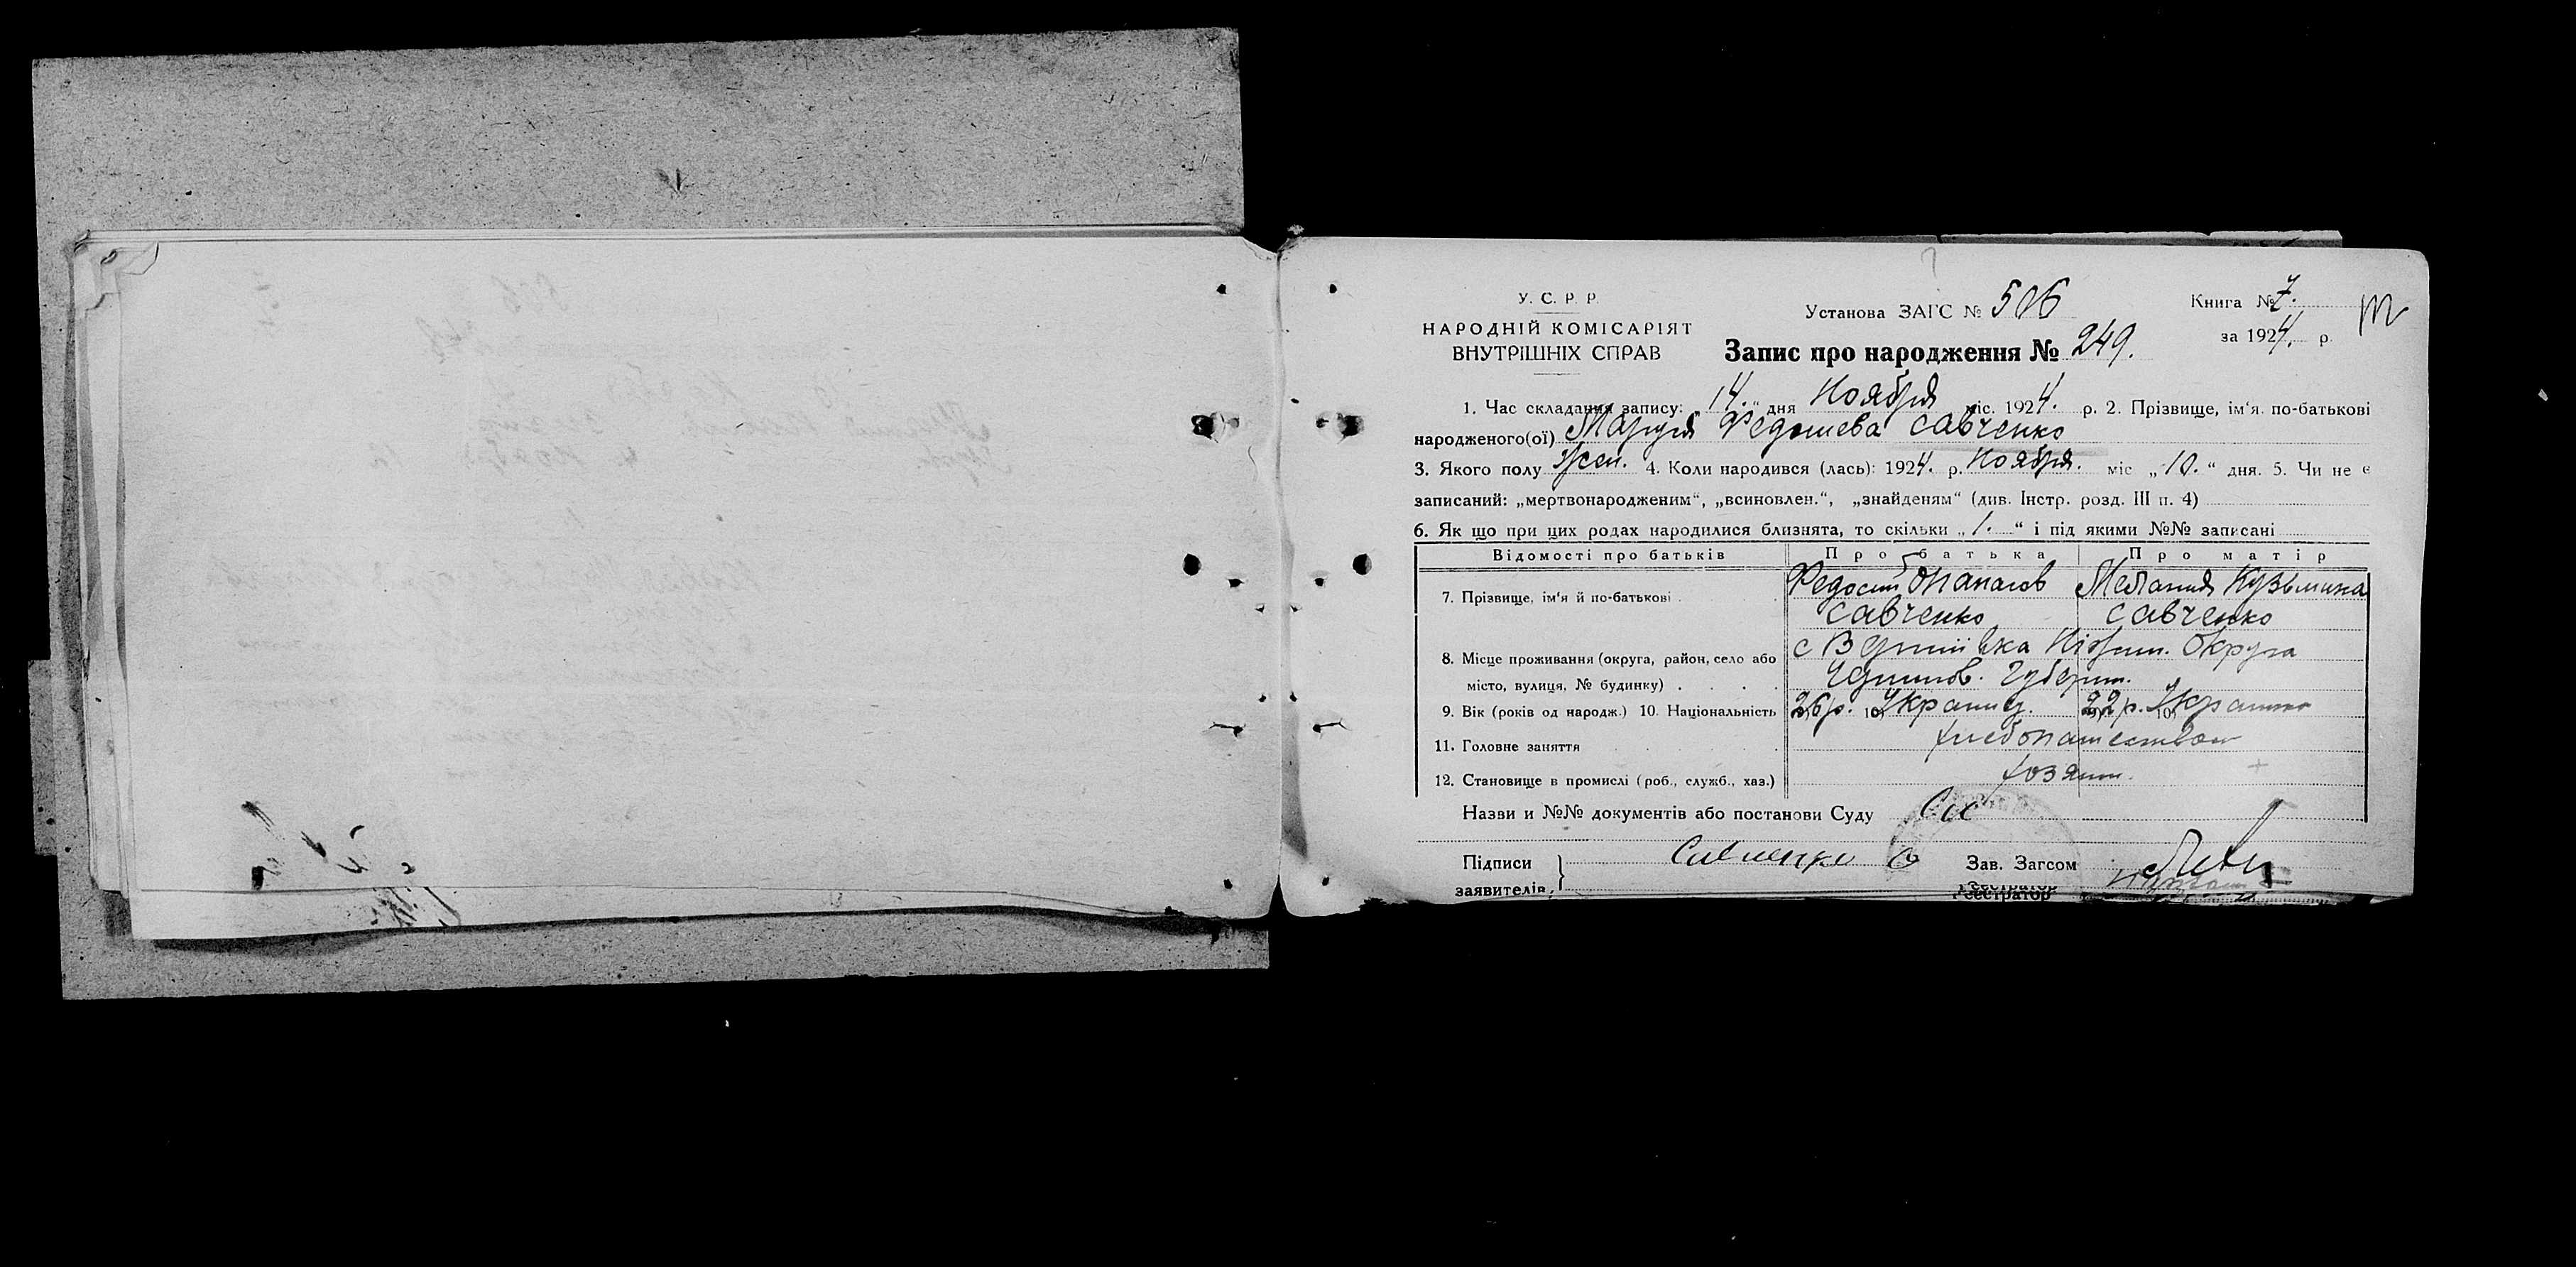 У. С. Р. Р.
НАРОДНІЙ КОМІСАРІЯТ
ВНУТРІШНІХ СПРАВ
Установа ЗАГС № 506
Запис про народження № 249.
Книга № 7.
за 1924. р.
1. Час складання запису: „14.“ дня Ноября міс. 1924. р. 2. Прізвище, ім‘я. по-батькові
народженого(ої) Мария Федосиева Савченко
3. Якого полу жен. 4. Коли народився (лась): 1924. р. Ноября. міс „10.“ дня. 5. Чи не є
записаний: „мертвонародженим“, „всиновлен.“, „знайденям“ (див. Інстр. розд. III п. 4)
6. Як що при цих родах народилися близнята, то скільки „1.“ і під якими №№ записані
Відомості про батьків Про батька Про матір
7. Прізвище, ім‘я й по-батькові Федосий Опанасов Мелания Кузьмина
Савченко Савченко
8. Місце проживання (округа, район, село або с Вертіївка Ніжин. Округа
місто, вулиця, № будинку) Чернигов. Губерни.
9. Вік (років од народж.) 10. Національність 26 р. 10) Украинц. 22 р. 10)
11. Головне заняття хлебопашеством
12. Становище в промислі (роб., служб., хаз.) хозяин.
Назви и №№ документів або постанови Суду
Підписи Савченко
заявителів:
Зав. Загсом
Реєстратор